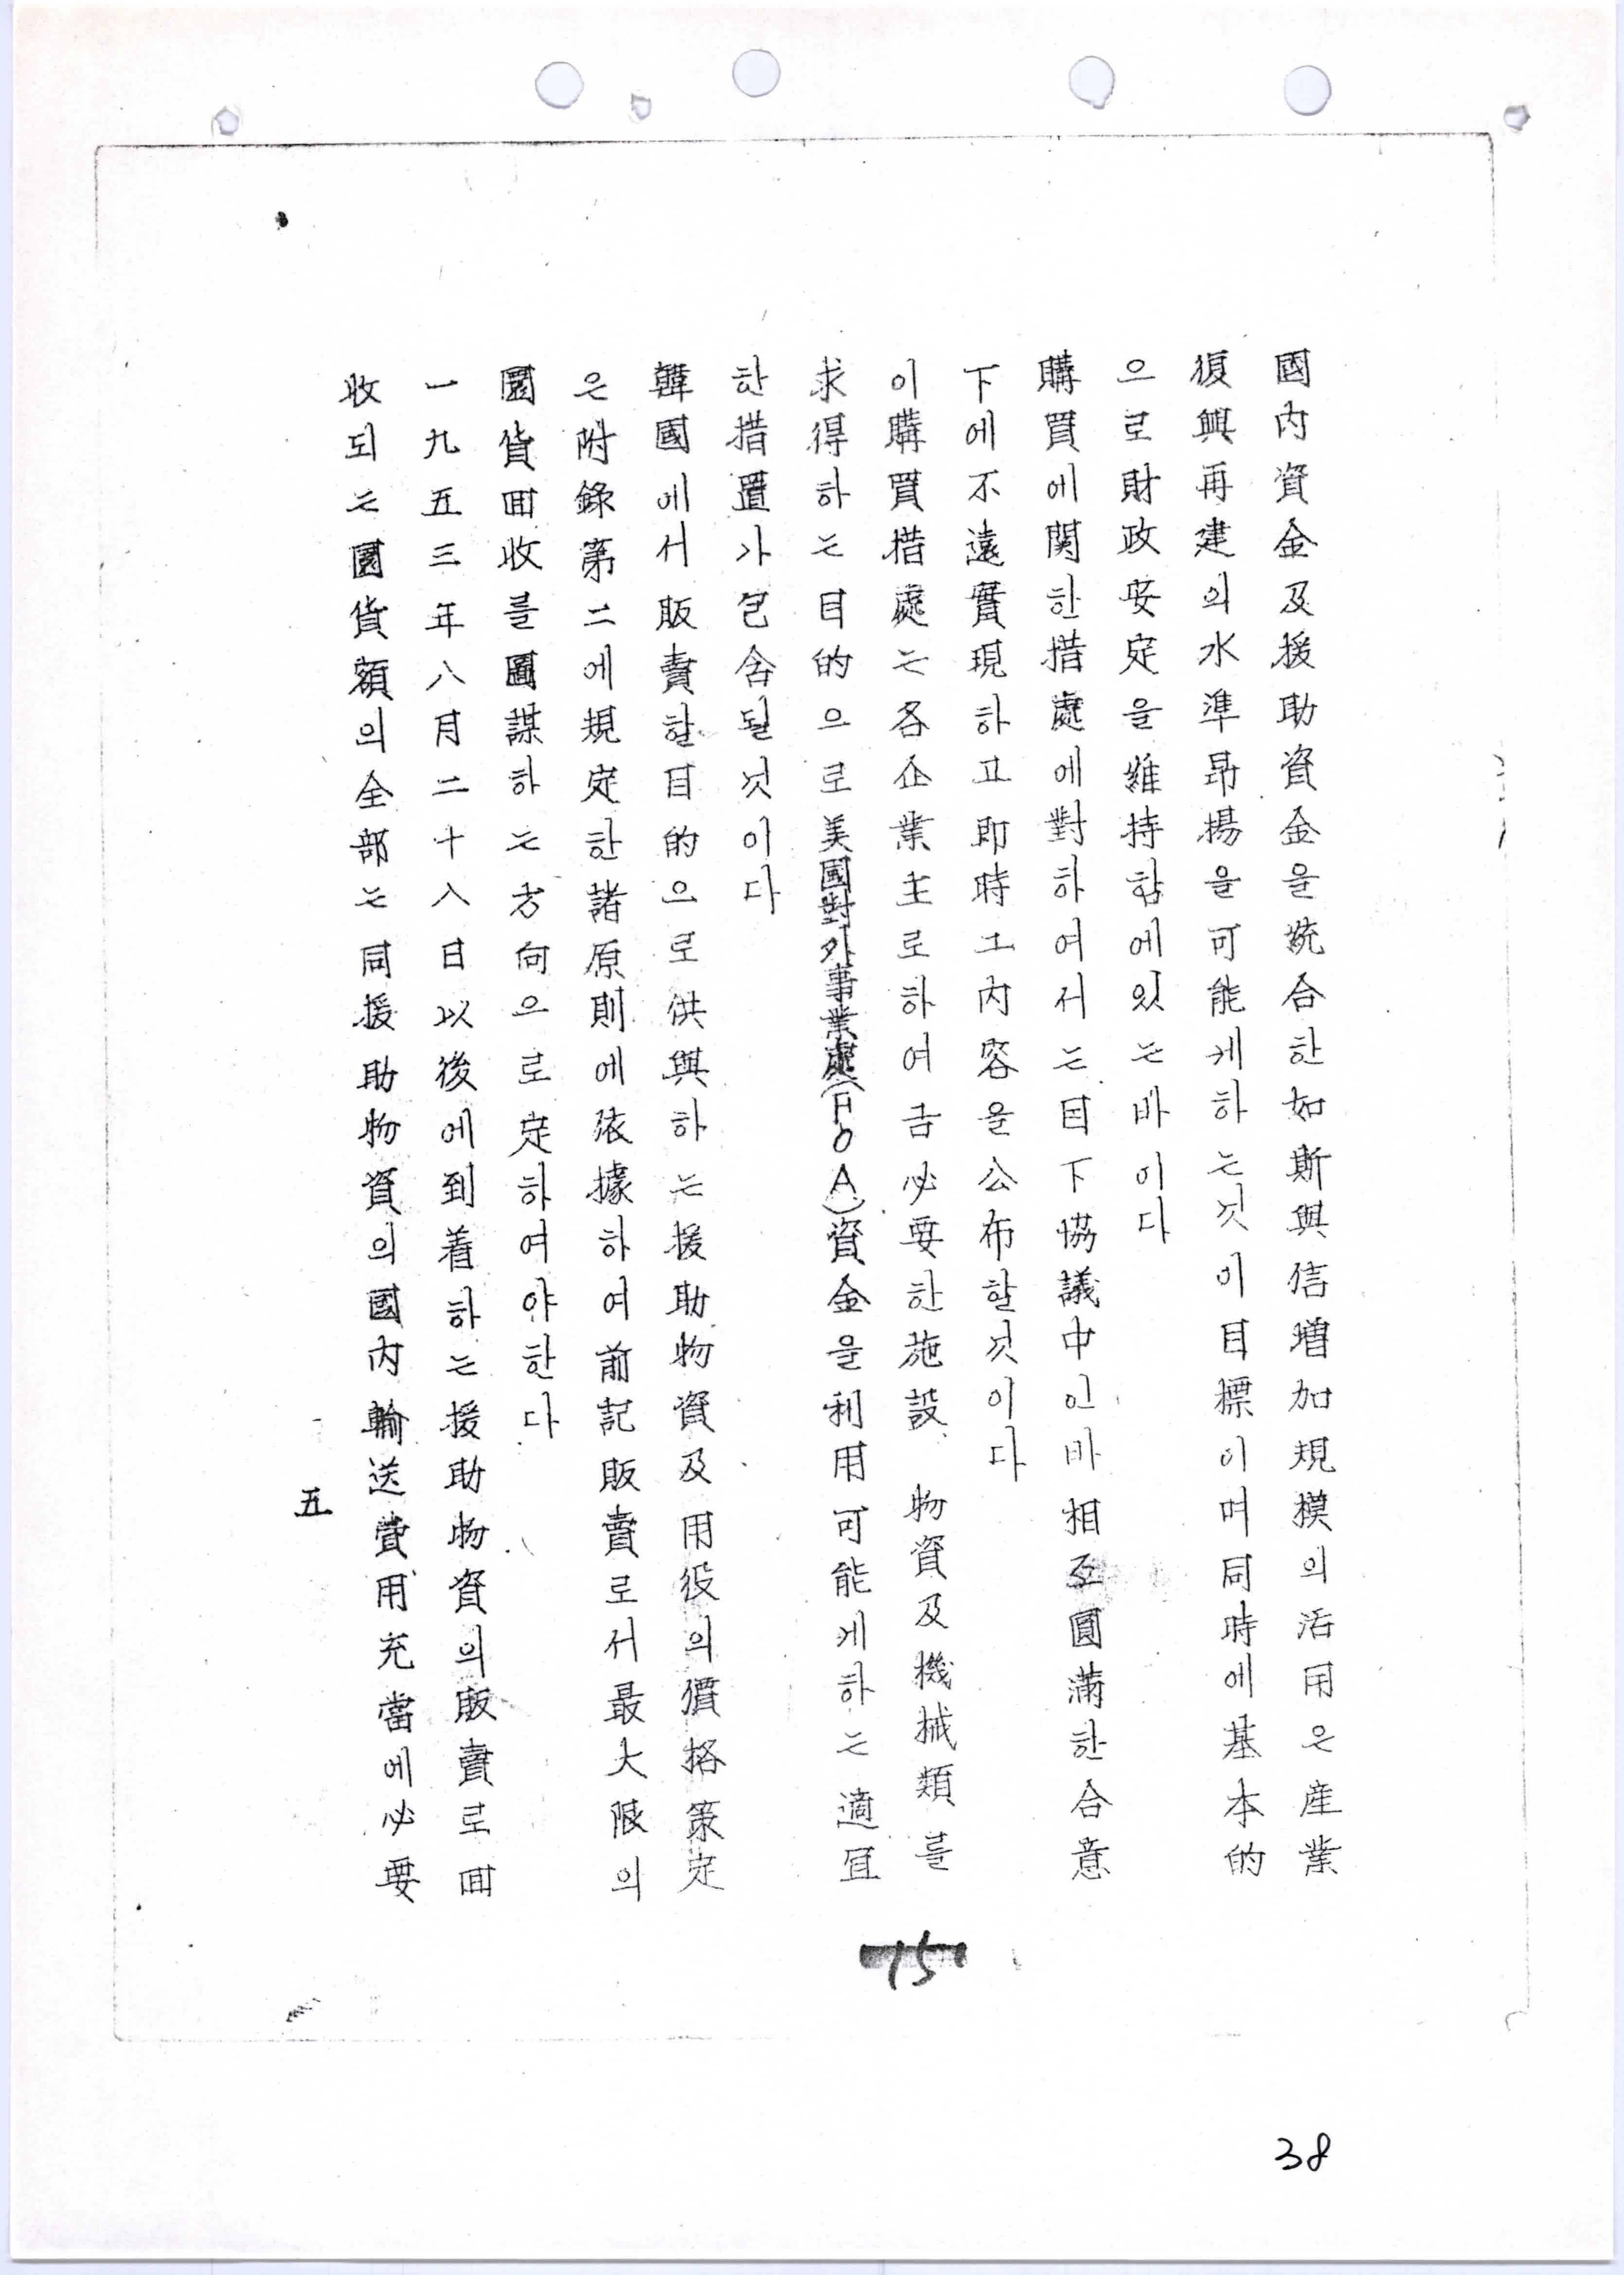 國內資金及援助資金을統合한如斯與信增加規模의活用은産業
復興再建의水準昻揚을可能케하는것이目標이며同時에基本的
으로財政安定을維持함에있는바이다
購買에関한措處에對하여서는目下協議中인바相互圓滿한合意
下에不遠實現하고即時그內容을公布할것이다
이購買措處는各企業主로하여금必要한施設 物資及機械類를
求得하는目的으로美國對外事業處(FOA)資金을利用可能케하는適宜
한措置가包含될것이다
韓國에서販賣할目的으로供與하는援助物資及用役의價格策定
은附錄第二에規定한諸原則에依據하여前記販賣로서最大限의
圜貨回收를圖謀하는方向으로定하여야한다
一九五三年八月二十八日以後에到着하는援助物資의販賣로回
收되는圜貨額의全部는同援助物資의國內輸送費用充當에必要
五
15
38